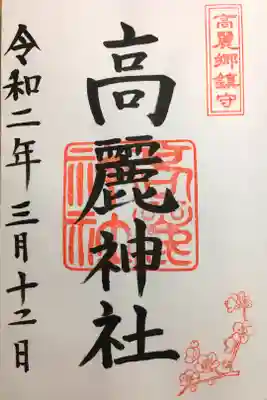 高麗郷鎮守
高麗神社
令和二年三月十二日